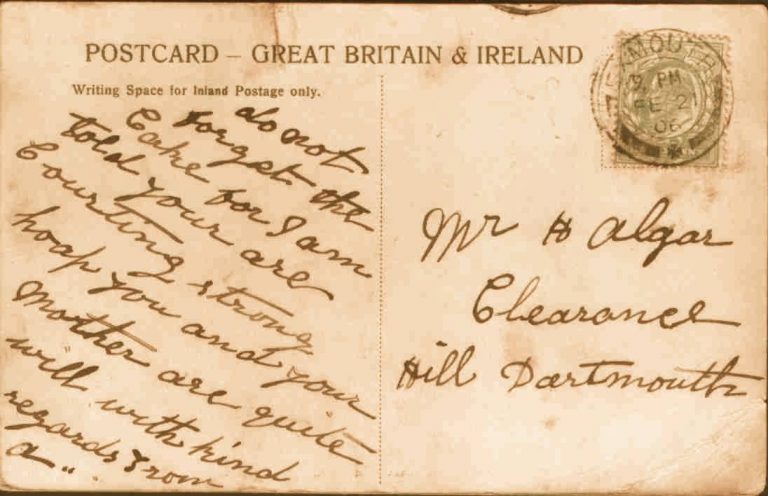 POSTCARD – GREAT BRITAIN & IRELAND
Writing Space for Inland Postage only.
do not
forget the
Cake for I am
told your are
Courting strong
hoap you and your
Mother are quite
will with kind
regards from
a".
MOUTH
PM
FE 21
06
Mr H Algar
Clearance
Hill Dartmouth